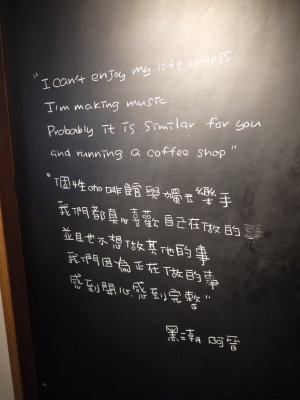 "I can't enjoy my life unless
I'm making music.
Probably it is similar for you
and running a coffee shop"
"個性咖啡館與獨立樂手
我們都真的喜歡自己在做的事
並且也不想做其他的事
我們因為正在做的事
感到開心,感到完整"
黑 朝 阿